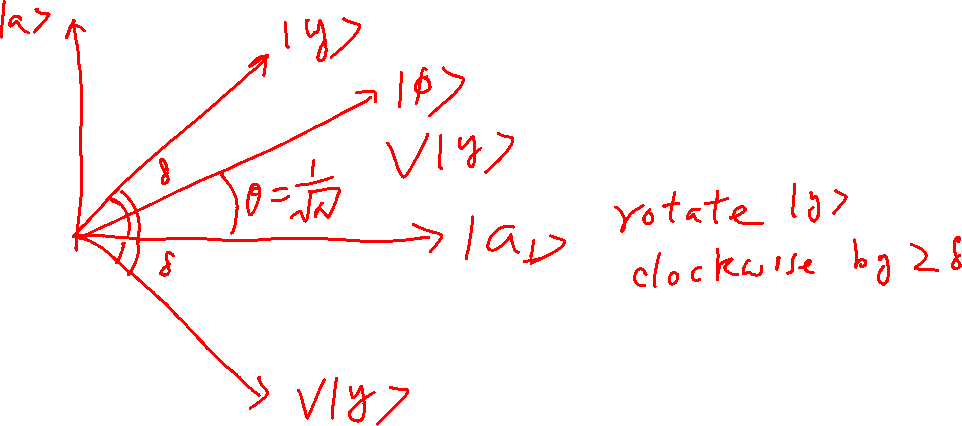 |a>
|y>
|ϕ>
V|y>
δ
θ = 1/√N
rotate |y>
|a⊥>
δ
clockwise by 2δ
V|y>